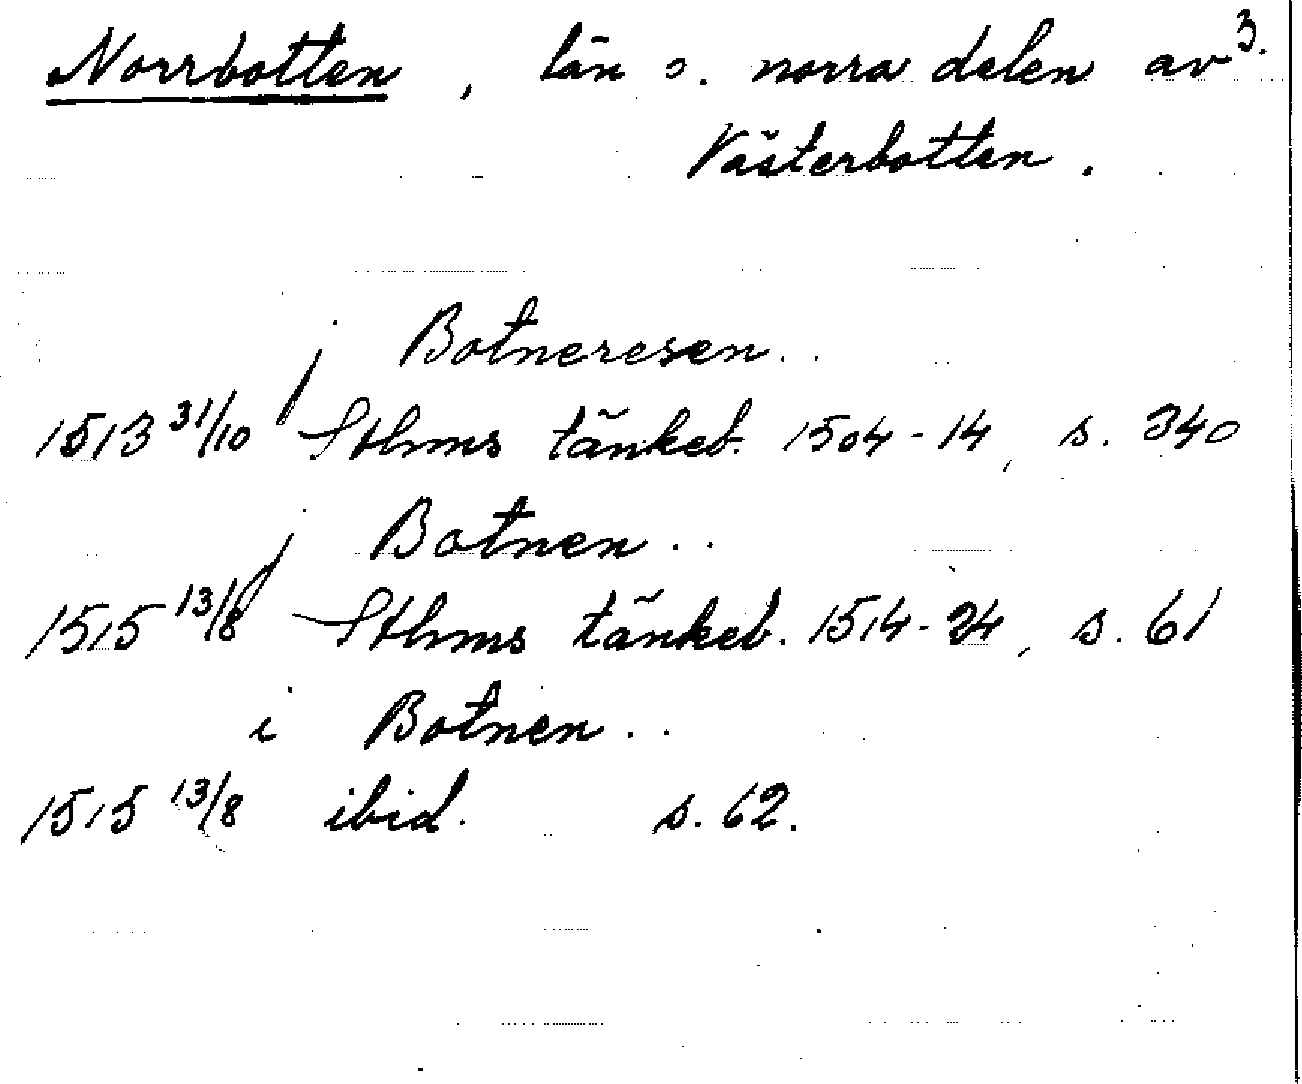 Norrbotten, län o. norra delen av 3.
Västerbotten.
j Botneresen..
1513 31/10 Sthms tänkeb. 1504-14, s. 340
j Botnen..
1515 13/8 Sthms tänkeb. 1514-24, s. 61
i Botnen..
1515 13/8 ibid. s. 62.